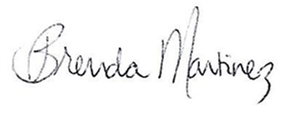 Brenda Martinez